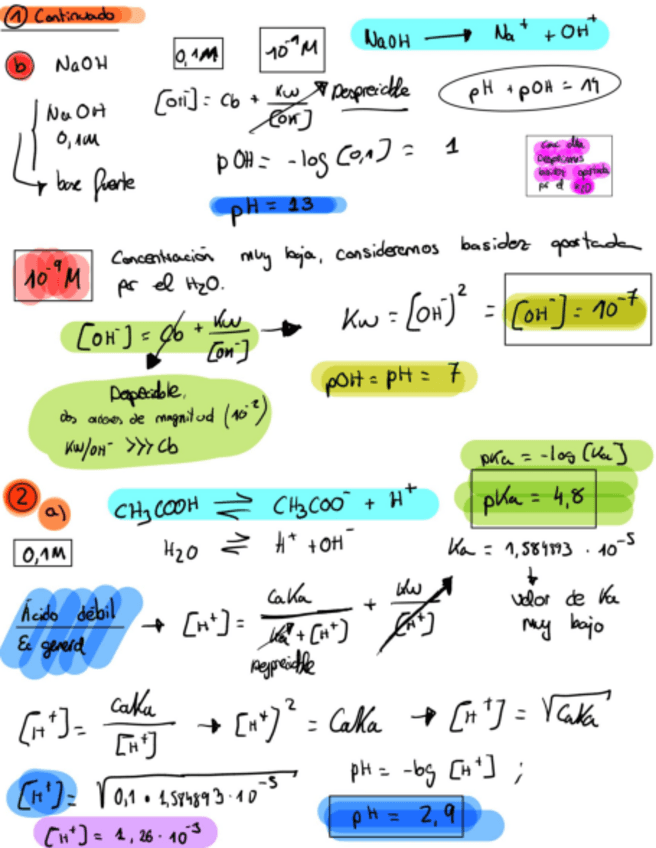 ① Continuado
b NaOH 0,1M 10⁻⁹M NaOH → Na⁺ + OH⁺
NaOH 0,1M
base fuerte
[OH] = Cb + Kw/[OH] Despreciable
pH + pOH = 14
pOH = -log [0,1] = 1
pH = 13
Conc alta
basidez aportada
por el H₂O
10⁻⁹M Concentración muy baja, consideremos basidez aportada
por el H₂O.
[OH⁻] = Cb + Kw/[OH⁻] → Kw = [OH⁻]² = [OH⁻] = 10⁻⁷
pOH = pH = 7
Despreciable,
dos ordenes de magnitud (10⁻²)
Kw/OH⁻ >>> Cb
② a) CH₃COOH ⇌ CH₃COO⁻ + H⁺
0,1M H₂O ⇌ H⁺ + OH⁻
pKa = -log [Ka]
pKa = 4,8
Ka = 1,584893 · 10⁻⁵
valor de Ka
muy bajo
Ácido débil
Ec general
→ [H⁺] = CaKa/(Ka + [H⁺]) + Kw/[H⁺]
Despreciable
[H⁺] = CaKa/[H⁺] → [H⁺]² = CaKa → [H⁺] = √CaKa
[H⁺] = √0,1 • 1,584893 · 10⁻⁵
pH = -log [H⁺] ;
[H⁺] = 1,26 · 10⁻³
pH = 2,9